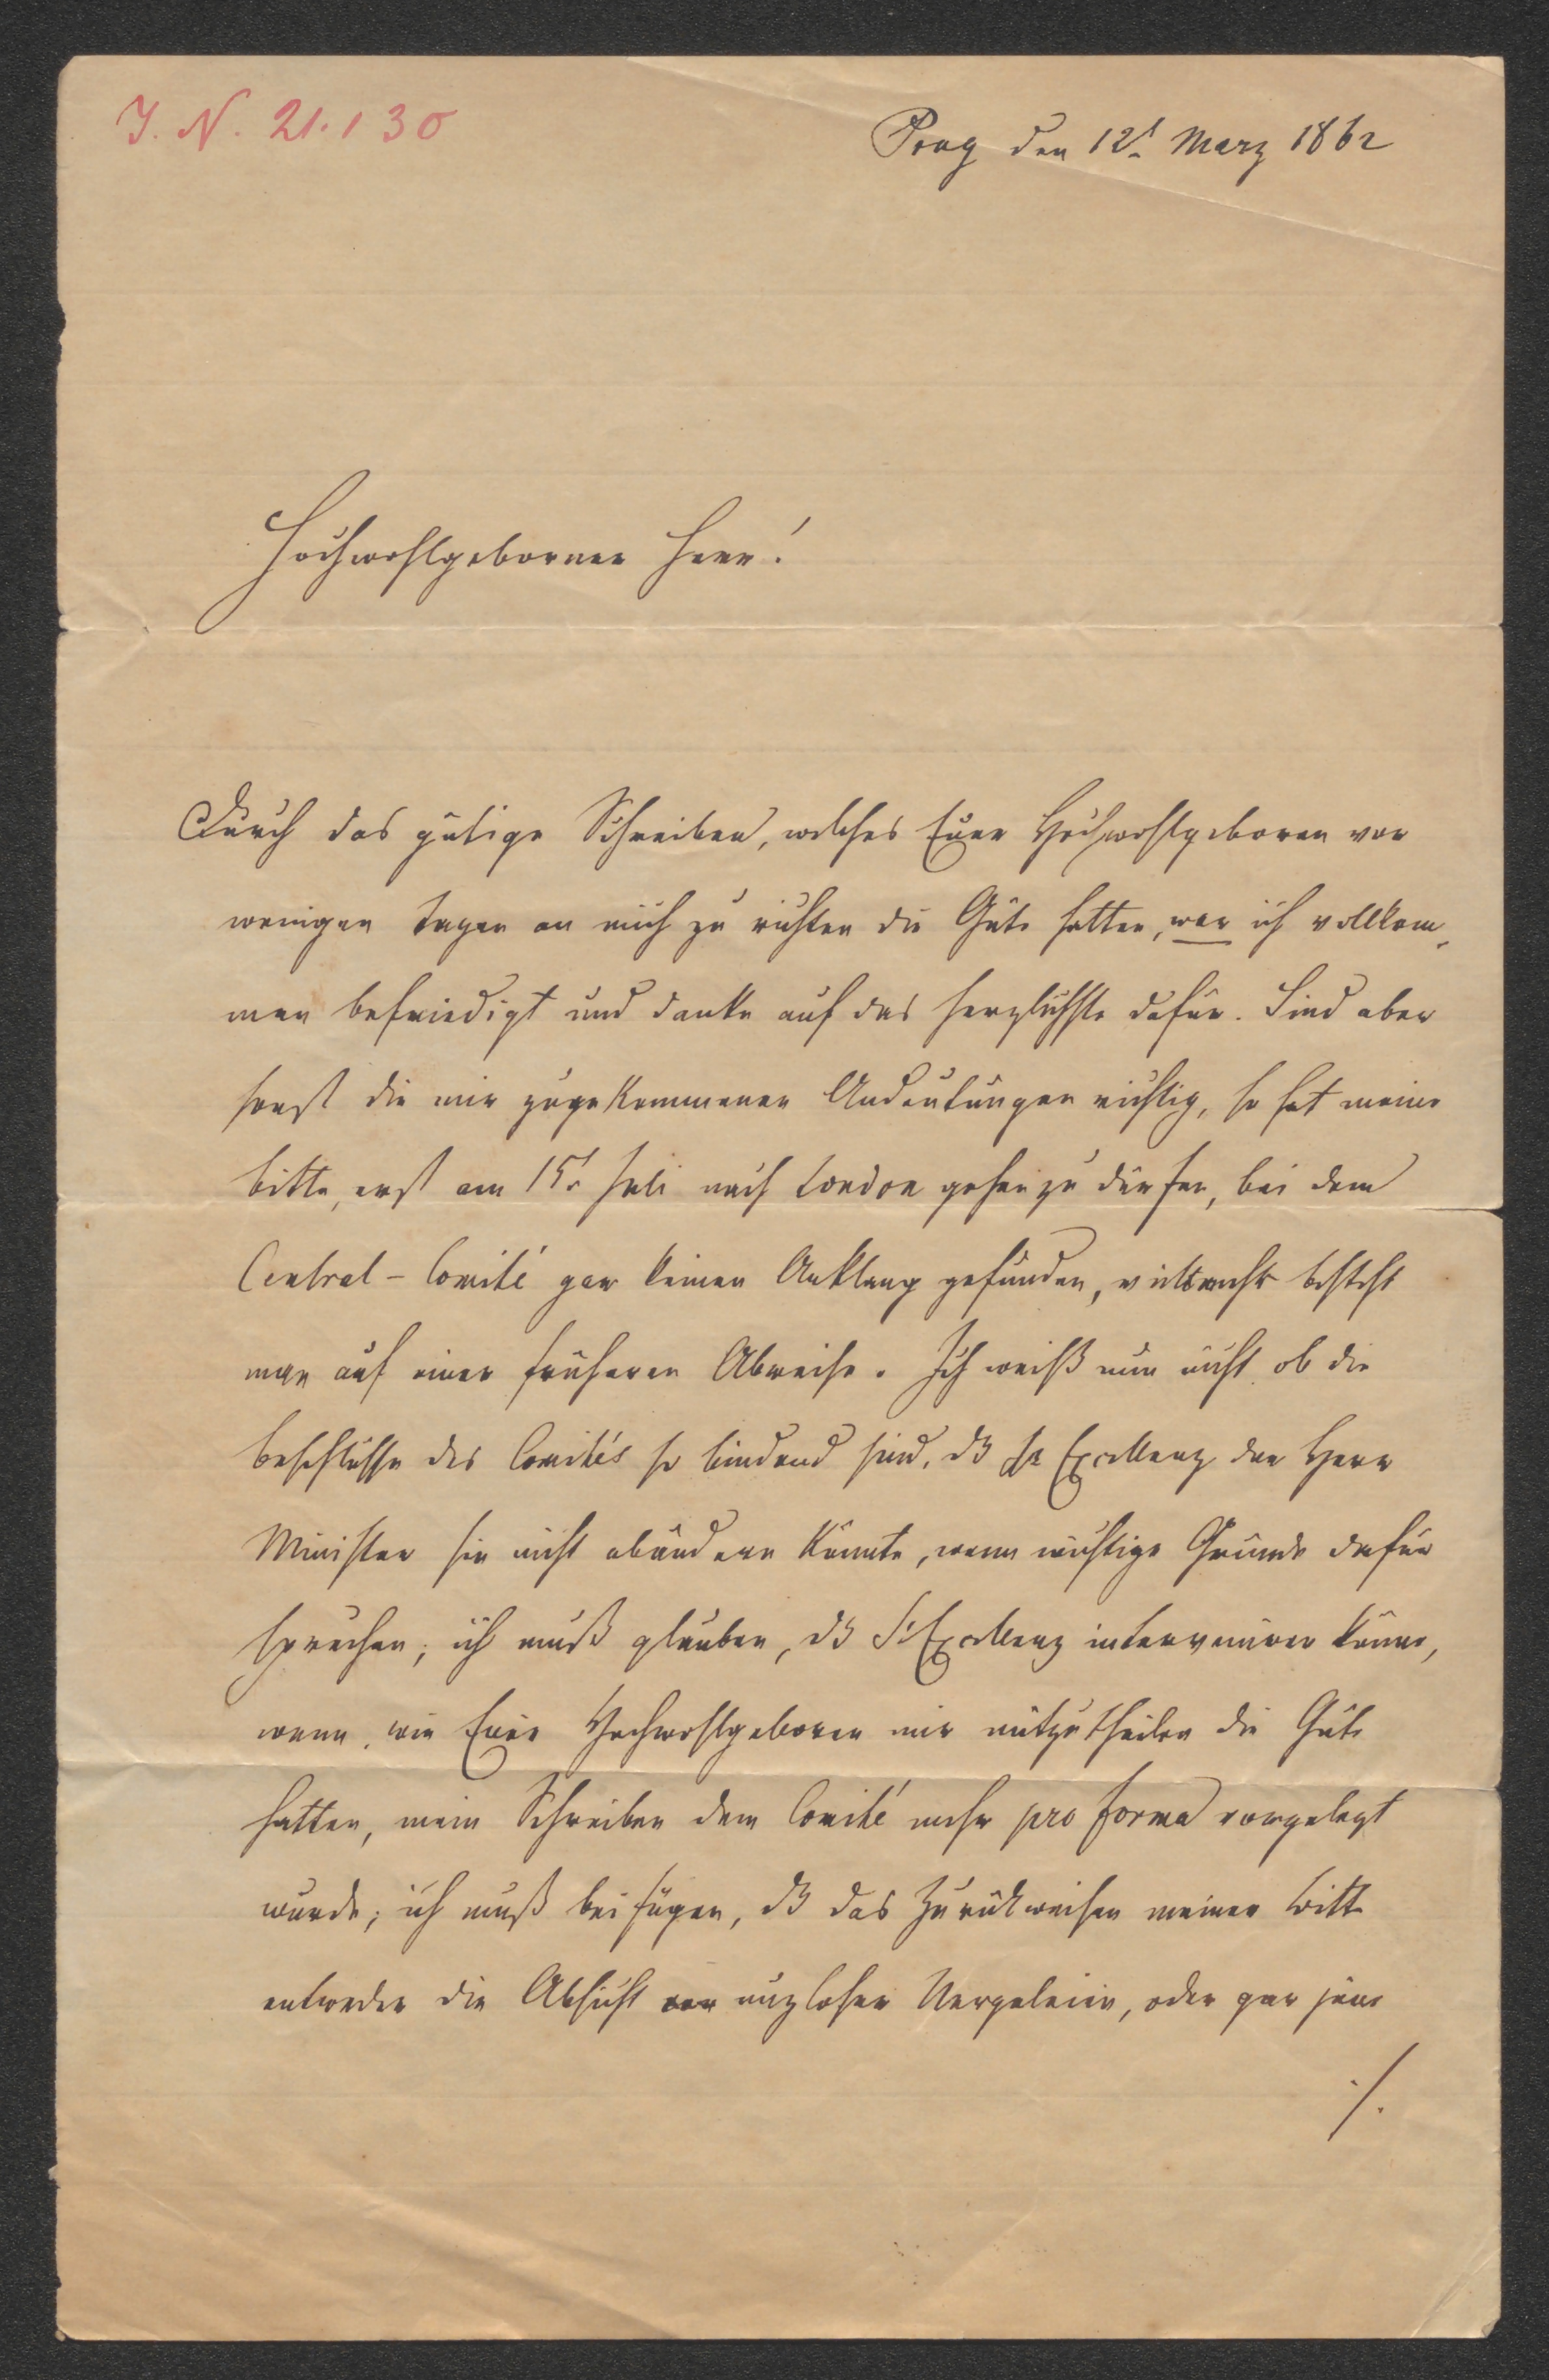 J. N. 21.130
Prag den 12t März 1862
Hochwohlgeborner Herr!
Durch das gütige Schreiben, welches Euer Hochwohlgeboren vor
wenigen Tagen an mich zu richten die Güte hatten, war ich vollkom„
men befriedigt und danke auf das herzlichste dafür. Sind aber
sonst die mir zugekommenen Andeutungen richtig, so hat meine
Bitte, erst am 15t Juli nach London gehen zu dürfen, bei dem
Central-Comité gar keinen Anklang gefunden, vielmehr besteht
man auf einer früheren Abreise. Ich weiß nun nicht ob die
Beschlüsse des Comités so bindend sind, dß Se Excellenz der Herr
Minister sie nicht abändern könnte, wenn wichtige Gründe dafür
sprechen; ich muß glauben, dß Se Excellenz interveniren könne,
wenn, wie Euer Hochwohlgeboren mir mitzutheilen die Güte
hatten, mein Schreiben dem Comité mehr pro forma vorgelegt
wurde; ich muß beifügen, dß das Zurückweisen meiner Bitte
entweder die Absicht nuzloser Nergeleien, oder gar jene
./.